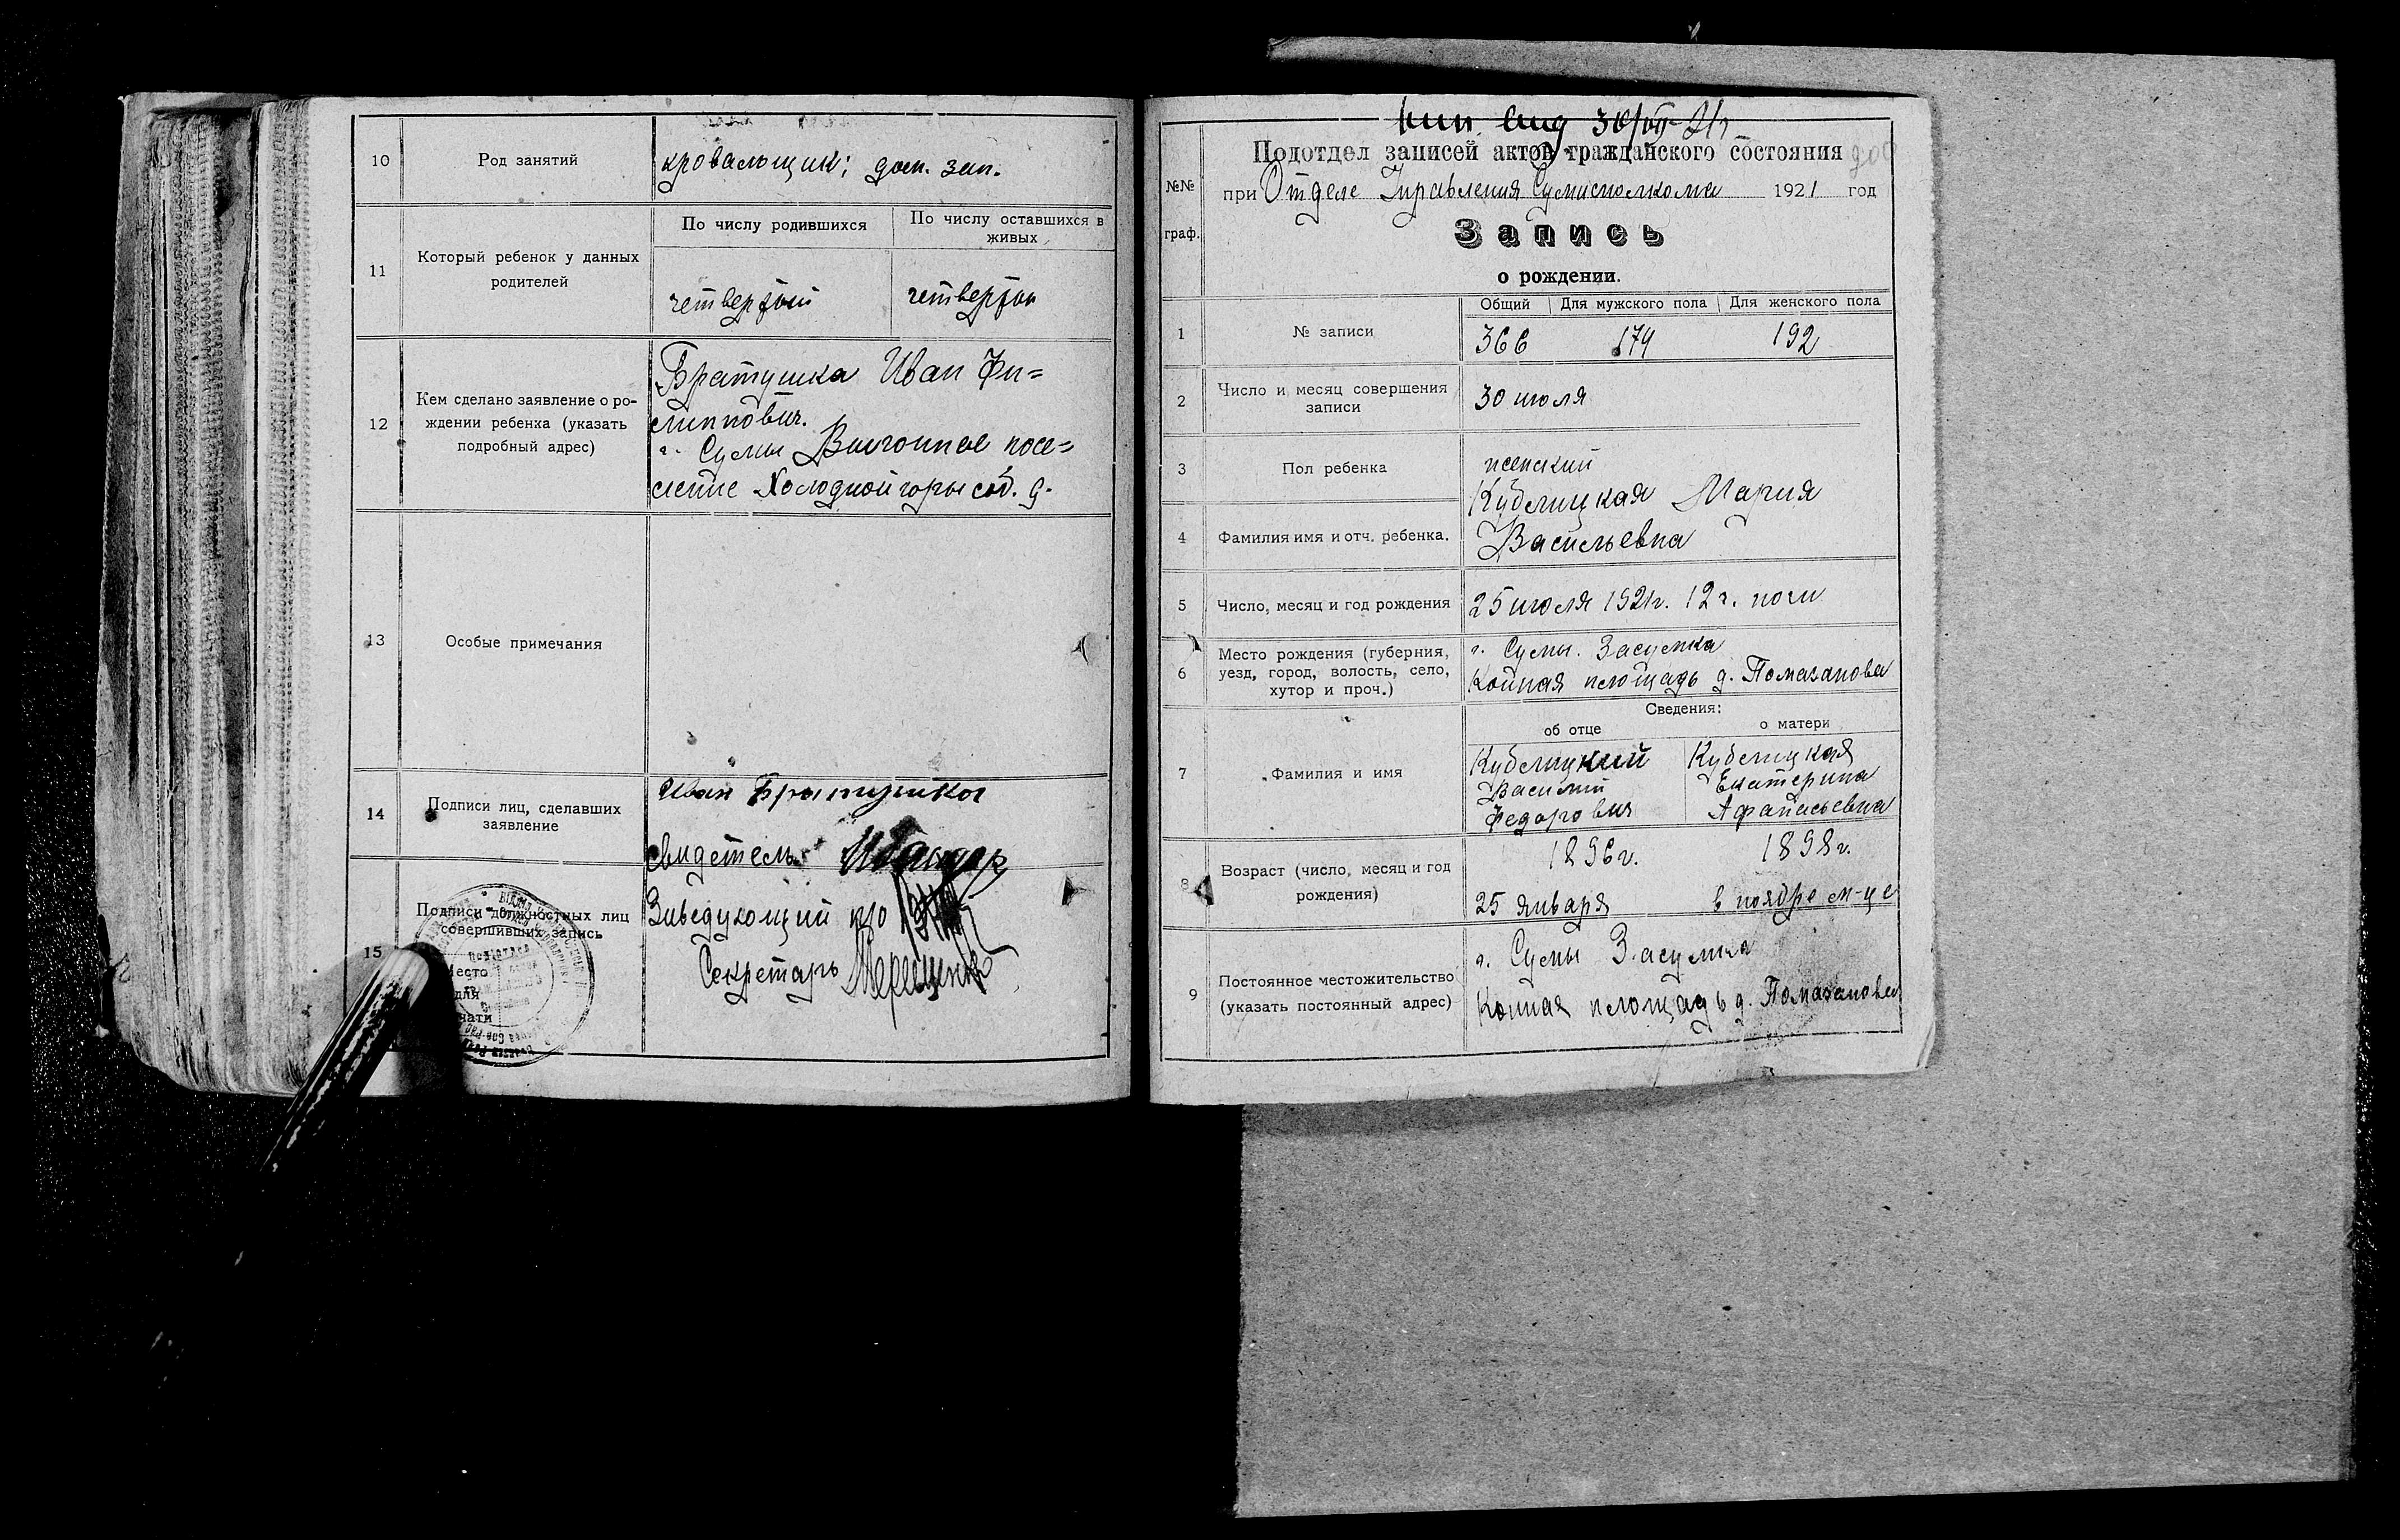 10
Род занятий
кровальщик; дом. зан.
11
Который ребенок у данных
родителей
По числу родившихся
По числу оставшихся в
живых
четвертый
четвертый
12
Кем сделано заявление о ро-
ждении ребенка (указать
подробный адрес)
Братушка Иван Фи=
липпович.
г. Сумы Выгонное посе=
ление Холодной горы соб. д.
13
Особые примечания
14
Подписи лиц, сделавших
заявление
Иван Братушка
свидетель
15
Подписи должностных лиц
совершивших запись
Место
для
чати
Заведующий п/о
Секретарь Терещенко
30/VII-21г
№№
граф.
Подотдел записей актов гражданского состояния
при Отделе Управления Сумисполкома 1921 год
Запись
о рождении.
Общий
Для мужского пола
Для женского пола
1
№ записи
366
174
192
2
Число и месяц совершения
записи
30 июля
3
Пол ребенка
женский
4
Фамилия имя и отч. ребенка.
Кублицкая Мария
Васильевна
5
Число, месяц и год рождения
25 июля 1921г. 12 ч. ночи
6
Место рождения (губерния,
уезд, город, волость, село,
хутор и проч.)
г. Сумы. Засумка
Конная площадь д. Помазанова
Сведения:
об отце
о матери
7
Фамилия и имя
Кублицкий
Василий
Федорович
Кублицкая
Екатерина
Афанасьевна
8
Возраст (число, месяц и год
рождения)
1896г.
25 января
1898г.
в ноябре м-це
9
Постоянное местожительство
(указать постоянный адрес)
г. Сумы Засумка
Конная площадь д. Помазанова